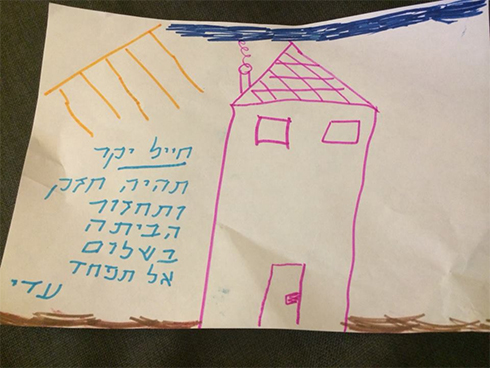 חייל יקר
תהיה חזק
ותחזור
הביתה
בשלום
אל תפחד
עדי